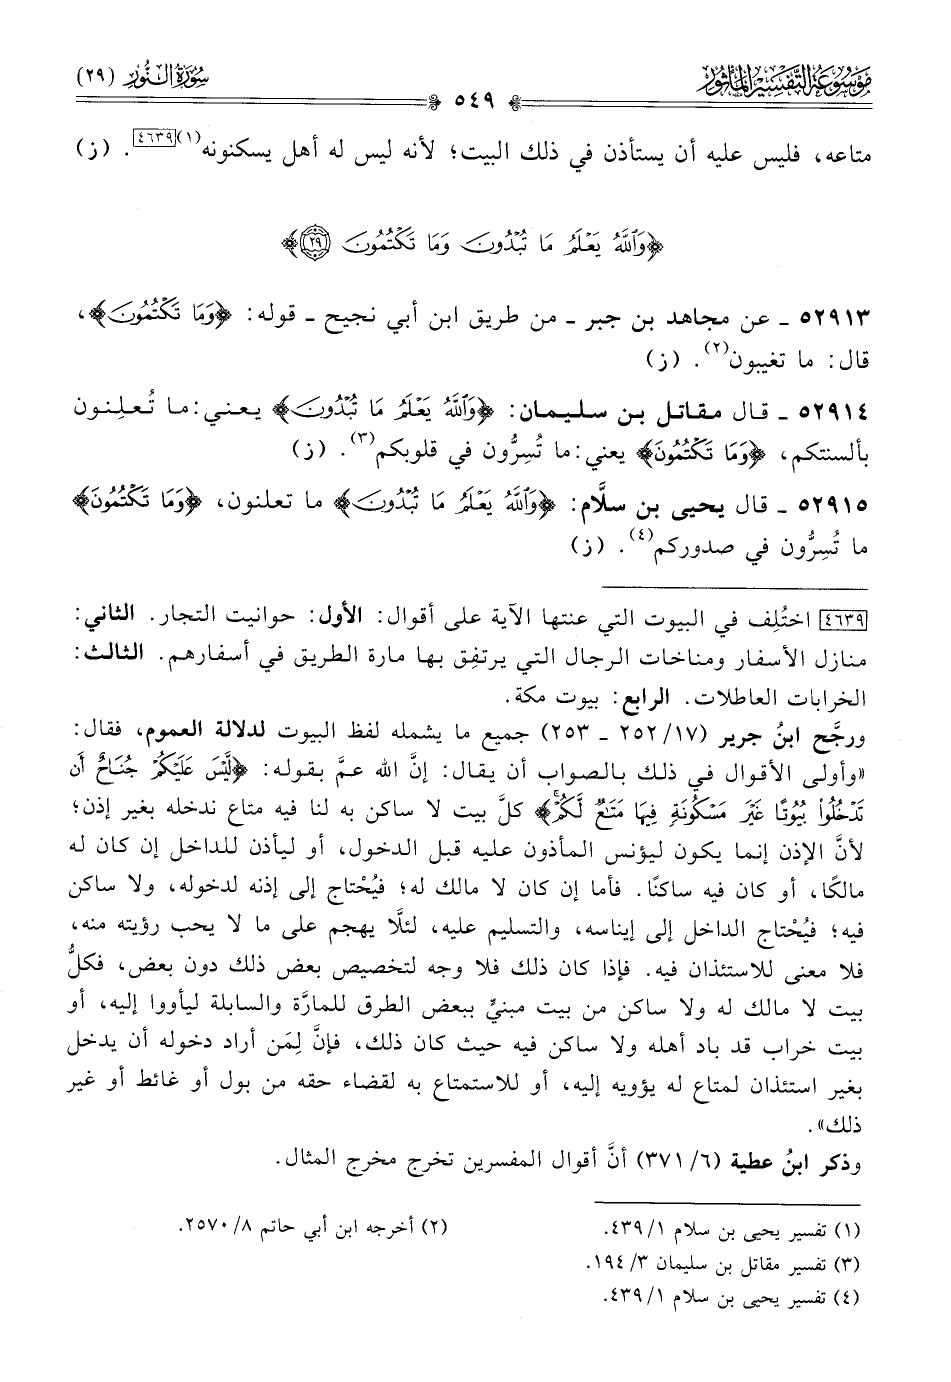 موسوعة التفسير المأثور
سورة النور (٢٩)
٥٤٩
متاعه، فليس عليه أن يستأذن في ذلك البيت؛ لأنه ليس له أهل يسكنونه(١)[٤٦٣٩]. (ز)
﴿وَٱللَّهُ يَعْلَمُ مَا تُبْدُونَ وَمَا تَكْتُمُونَ ٢٩﴾
٥٢٩١٣ ـ عن مجاهد بن جبر ـ من طريق ابن أبي نجيح ـ قوله: ﴿وَمَا تَكْتُمُونَ﴾،
قال: ما تغيبون(٢). (ز)
٥٢٩١٤ ـ قال مقاتل بن سليمان: ﴿وَٱللَّهُ يَعْلَمُ مَا تُبْدُونَ﴾ يعني: ما تُعلِنون
بألسنتكم، ﴿وَمَا تَكْتُمُونَ﴾ يعني: ما تُسِرُّون في قلوبكم(٣). (ز)
٥٢٩١٥ ـ قال يحيى بن سلَّام: ﴿وَٱللَّهُ يَعْلَمُ مَا تُبْدُونَ﴾ ما تعلنون، ﴿وَمَا تَكْتُمُونَ﴾
ما تُسِرُّون في صدوركم(٤). (ز)
[٤٦٣٩] اختُلِف في البيوت التي عنتها الآية على أقوال: الأول: حوانيت التجار. الثاني:
منازل الأسفار ومناخات الرجال التي يرتفق بها مارة الطريق في أسفارهم. الثالث:
الخرابات العاطلات. الرابع: بيوت مكة.
ورجَّح ابنُ جرير (١٧/ ٢٥٢ ـ ٢٥٣) جميع ما يشمله لفظ البيوت لدلالة العموم، فقال:
«وأولى الأقوال في ذلك بالصواب أن يقال: إنَّ الله عمَّ بقوله: ﴿لَّيْسَ عَلَيْكُمْ جُنَاحٌ أَن
تَدْخُلُواْ بُيُوتًا غَيْرَ مَسْكُونَةٍ فِيهَا مَتَٰعٌ لَّكُمْ﴾ كلَّ بيت لا ساكن به لنا فيه متاع ندخله بغير إذن؛
لأنَّ الإذن إنما يكون ليؤنس المأذون عليه قبل الدخول، أو ليأذن للداخل إن كان له
مالكًا، أو كان فيه ساكنًا. فأما إن كان لا مالك له؛ فيُحْتاج إلى إذنه لدخوله، ولا ساكن
فيه؛ فيُحْتاج الداخل إلى إيناسه، والتسليم عليه، لئلَّا يهجم على ما لا يحب رؤيته منه،
فلا معنى للاستئذان فيه. فإذا كان ذلك فلا وجه لتخصيص بعض ذلك دون بعض، فكلُّ
بيت لا مالك له ولا ساكن من بيت مبنيٍّ ببعض الطرق للمارَّة والسابلة ليأووا إليه، أو
بيت خراب قد باد أهله ولا ساكن فيه حيث كان ذلك، فإنَّ لِمَن أراد دخوله أن يدخل
بغير استئذان لمتاع له يؤويه إليه، أو للاستمتاع به لقضاء حقه من بول أو غائط أو غير
ذلك».
وذكر ابنُ عطية (٦/ ٣٧١) أنَّ أقوال المفسرين تخرج مخرج المثال.
(١) تفسير يحيى بن سلام ١/ ٤٣٩.
(٢) أخرجه ابن أبي حاتم ٨/ ٢٥٧٠.
(٣) تفسير مقاتل بن سليمان ٣/ ١٩٤.
(٤) تفسير يحيى بن سلام ١/ ٤٣٩.